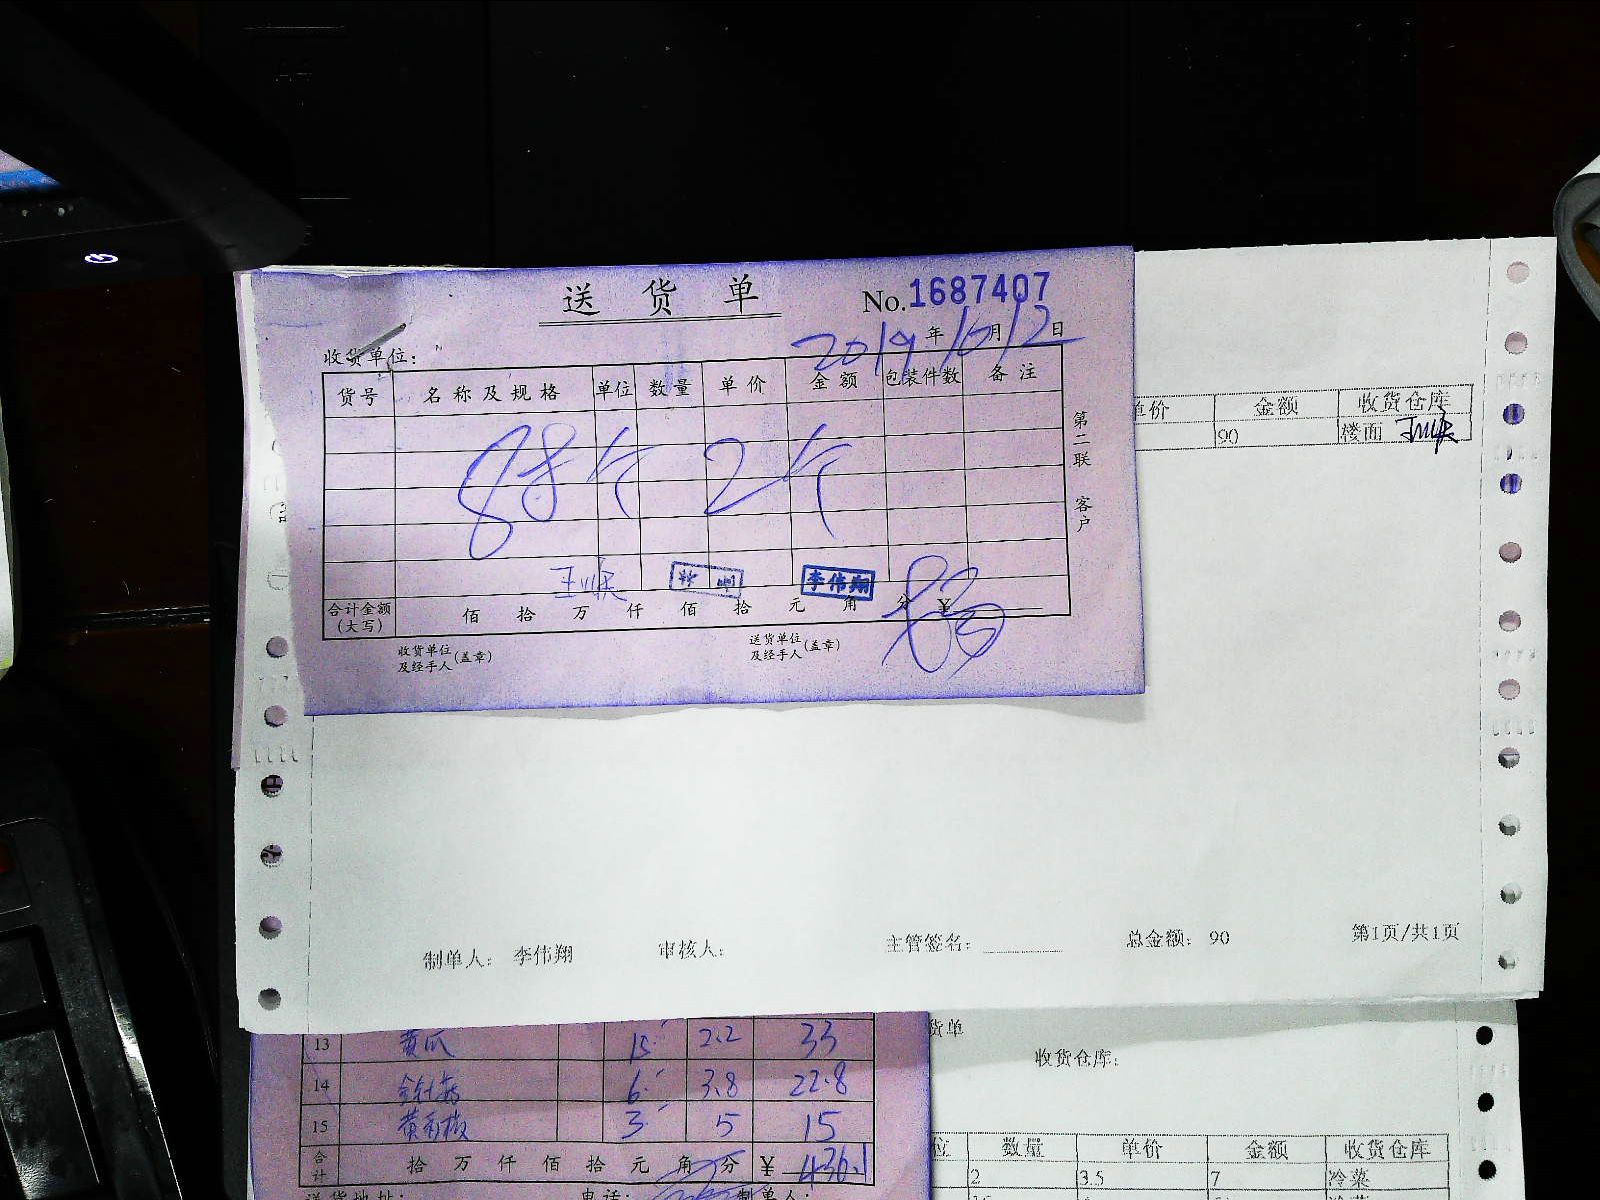 送货单
No.1687407
2019年10月12日
收货单位：
货号 名称及规格 单位 数量 单价 金额 包装件数 备注
第二联 客户
李伟翔
合计金额（大写） 佰 拾 万 仟 佰 拾 元 角 分 ¥
收货单位及经手人（盖章）
送货单位及经手人（盖章）
单价 金额 收货仓库
90 楼面
制单人： 李伟翔 审核人： 主管签名： 总金额： 90 第1页/共1页
13 黄瓜 15 2.2 33
14 6 3.8 22.8
15 3 5 15
合计 拾 万 仟 佰 拾 元 角 分 ¥ 436.1
送货地址： 电话： 制单人：
货单
收货仓库：
位 数量 单价 金额 收货仓库
2 3.5 7 冷菜